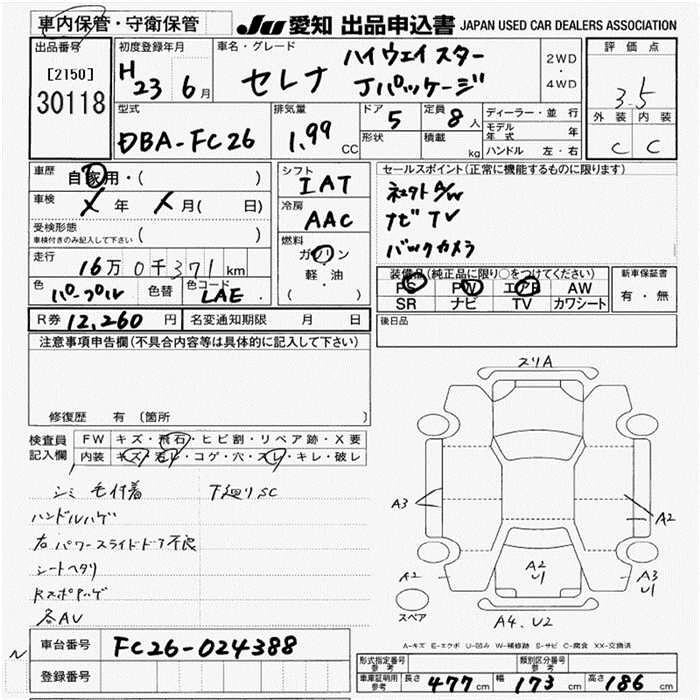 車内保管・守衛保管
JU 愛知 出品申込書 JAPAN USED CAR DEALERS ASSOCIATION
出品番号
[2150]
30118
初度登録年月
H23 6月
車名・グレード
セレナ
ハイウェイスター
Jパッケージ
2WD
・
4WD
評価点
3.5
外装 内装
C C
型式
DBA-FC26
排気量
1.99 CC
ドア 5
形状
定員 8人
積載 kg
ディーラー・並行
モデル年式 年
ハンドル 左・右
車歴 自家用・( )
車検 X年 X月( 日)
受検形態
車検付きのみ記入して下さい ( )
走行
16万0千371km
色 パープル 色替 色コード LAE
シフト
IAT
冷房
AAC
燃料
ガソリン
軽・油
( )
セールスポイント(正常に機能するものに限ります)
ナビ TV
バックカメラ
装備品(純正品に限り○をつけてください)
PS PW エアB AW
SR ナビ TV カワシート
新車保証書
有・無
R券 12,260円 名変通知期限 月 日
後日品
注意事項申告欄(不具合内容等は具体的に記入して下さい)
修復歴 有 〔箇所 〕
検査員
記入欄
FW キズ・飛石・ヒビ割・リペア跡・X要
内装 キズ・汚レ・コゲ・穴・スレ・キレ・破レ
シミ 毛付着 下廻りSC
ハンドルハゲ
右パワースライドドア不良
シートヘタリ
各AU
スリA
A3
A2
A2
A2
U1
A3
U1
スペア
A4. U2
A-キズ E-エクボ U-凹み W-補修跡 S-サビ C-腐食 XX-交換済
車台番号 FC26-024388
登録番号
形式指定番号
参考
類別区分番号
参考
車庫証明用
参考
長さ 477cm 幅 173cm 高さ 186cm